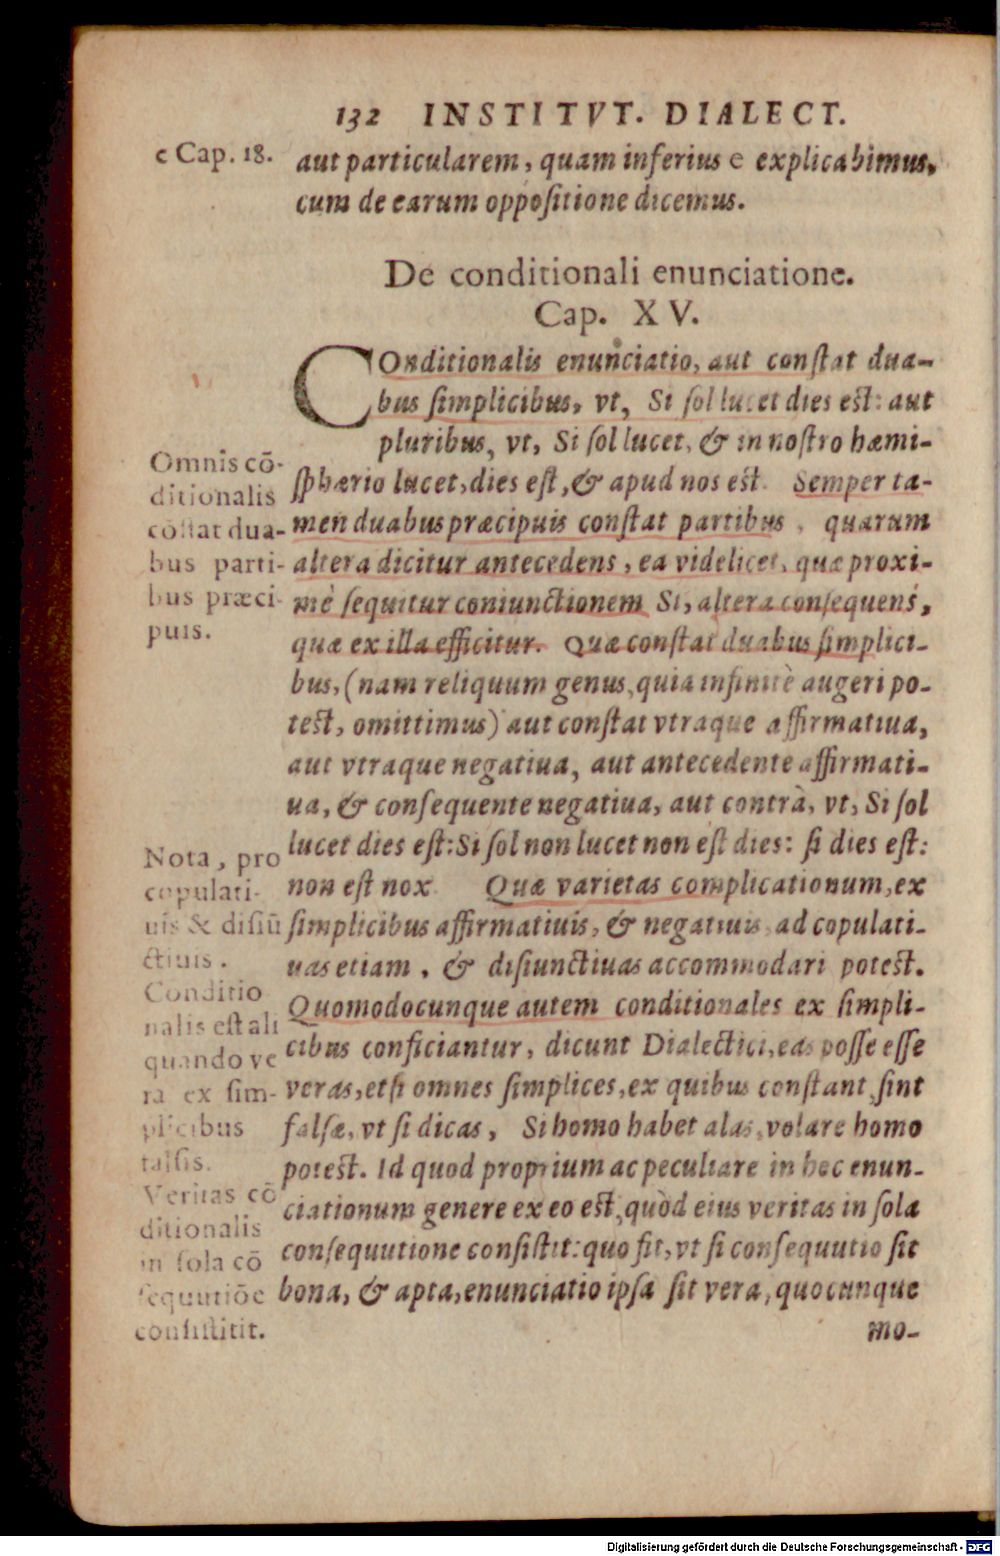 132 INSTITVT. DIALECT.
e Cap. 18.
aut particularem, quam inferius e explicabimus,
cum de earum oppoſitione dicemus.
De conditionali enunciatione.
Cap. XV.
COnditionalis enunciatio, aut conſtat dua-
bus ſimplicibus, vt, Si ſol lucet dies eſt: aut
pluribus, vt, Si ſol lucet, & in noſtro hæmi-
ſphærio lucet, dies eſt, & apud nos eſt. Semper ta-
men duabus præcipuis conſtat partibus, quarum
altera dicitur antecedens, ea videlicet, quæ proxi-
mè ſequitur coniunctionem Si, altera conſequens,
quæ ex illa efficitur. Quæ conſtat duabus ſimplici-
bus, (nam reliquum genus, quia infinitè augeri po-
teſt, omittimus) aut conſtat vtraque affirmatiua,
aut vtraque negatiua, aut antecedente affirmati-
ua, & conſequente negatiua, aut contrà, vt, Si ſol
lucet dies eſt: Si ſol non lucet non eſt dies: ſi dies eſt:
non eſt nox Quæ varietas complicationum, ex
ſimplicibus affirmatiuis, & negatiuis, ad copulati-
uas etiam, & diſiunctiuas accommodari poteſt.
Quomodocunque autem conditionales ex ſimpli-
cibus conficiantur, dicunt Dialectici, eas poſſe eſſe
veras, etſi omnes ſimplices, ex quibus conſtant, ſint
falſæ, vt ſi dicas, Si homo habet alas, volare homo
poteſt. Id quod proprium ac peculiare in hoc enun-
ciationum genere ex eo eſt, quòd eius veritas in ſola
conſequutione conſiſtit: quo fit, vt ſi conſequutio ſit
bona, & apta, enunciatio ipſa ſit vera, quocunque
mo-
Omnis cō-
ditionalis
cōſtat dua-
bus parti-
bus præci-
puis.
Nota, pro
copulati-
uis & diſiū
ctiuis.
Conditio
nalis eſt ali
quando ve
ra ex ſim-
plicibus
falſis.
Veritas cō
ditionalis
in ſola cō
ſequutiōe
conſiſtitit.
Digitalisierung gefördert durch die Deutsche Forschungsgemeinschaft - DFG